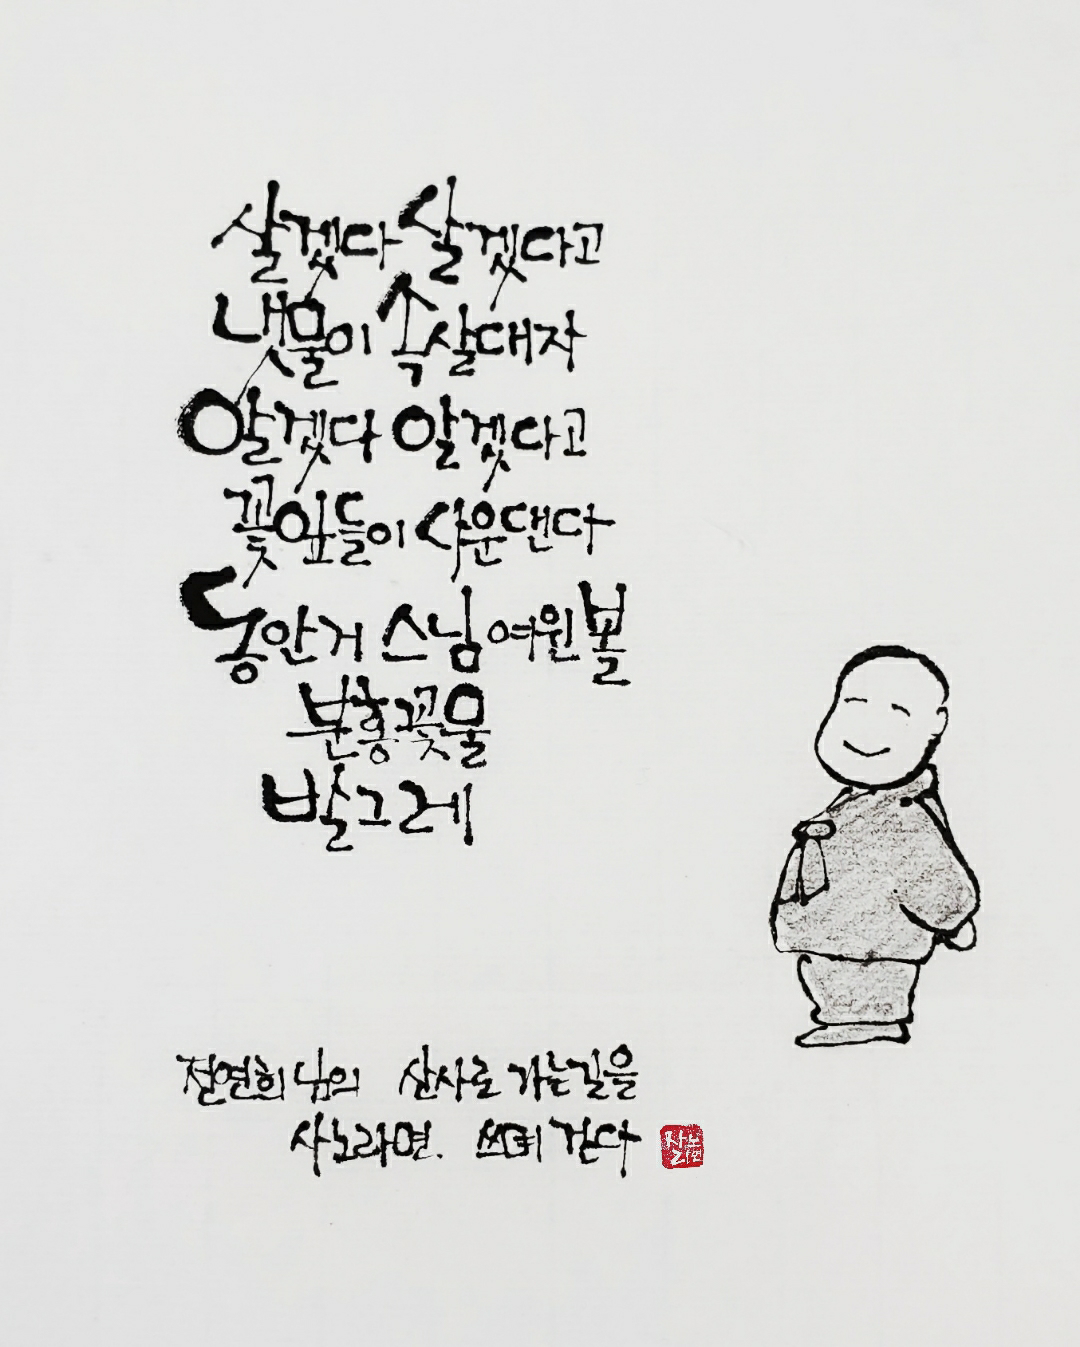 살겠다 살겠다고
냇물이 속살대자
알겠다 알겠다고
꽃잎들이 샤운댄다
동안거 스님 여윈 볼
분홍 꽃물
발그레
전연희님의 산사로 가는 길을
사노라면. 쓰며 걷다
사노라면